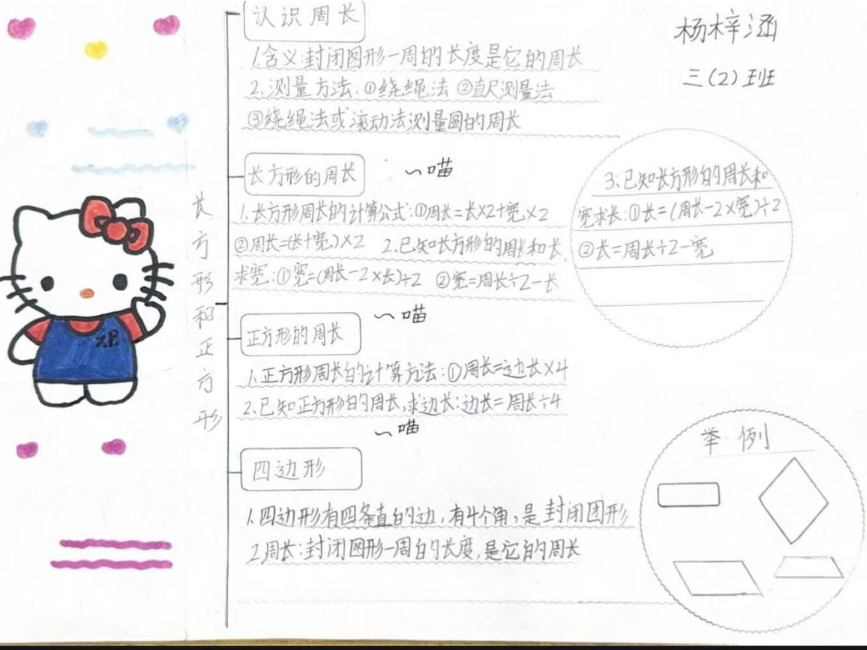 认识周长
杨梓涵
三(2)班
1.含义:封闭图形一周的长度是它的周长
2.测量方法:①绕绳法 ②直尺测量法
③绕绳法或滚动法测量圆的周长
长方形和正方形
长方形的周长
~喵
1.长方形周长的计算公式:①周长=长×2+宽×2
②周长=(长+宽)×2 2.已知长方形的周长和长,
求宽:①宽=(周长-2×长)÷2 ②宽=周长÷2-长
3.已知长方形的周长和
宽求长:①长=(周长-2×宽)÷2
②长=周长÷2-宽
~喵
正方形的周长
1.正方形周长的计算方法:①周长=边长×4
2.已知正方形的周长,求边长:边长=周长÷4
~喵
四边形
1.四边形有四条直的边,有4个角,是封闭团形
2.周长:封闭图形一周的长度,是它的周长
举例